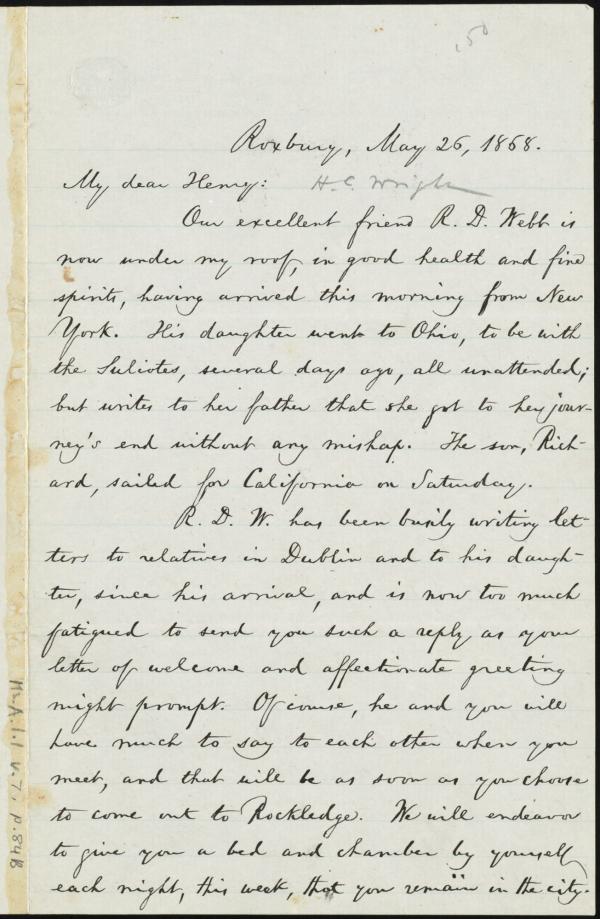 150
Roxbury, May 26, 1868.
My dear Henry: H. C. Wright
Our excellent friend R. D. Webb is
now under my roof, in good health and fine
spirits, having arrived this morning from New
York. His daughter went to Ohio, to be with
the Suliotes, several days ago, all unattended;
but writes to her father that she got to her jour-
ney's end without any mishap. The son, Rich-
ard, sailed for California on Saturday.
R. D. W. has been busily writing let-
ters to relatives in Dublin and to his daugh-
ter, since his arrival, and is now too much
fatigued to send you such a reply as your
letter of welcome and affectionate greeting
might prompt. Of course, he and you will
have much to say to each other when you
meet, and that will be as soon as you choose
to come out to Rockledge. We will endeavor
to give you a bed and chamber by yourself
each night, this week, that you remain in the city.
Ms. A. 1.1 v. 7, p. 84B